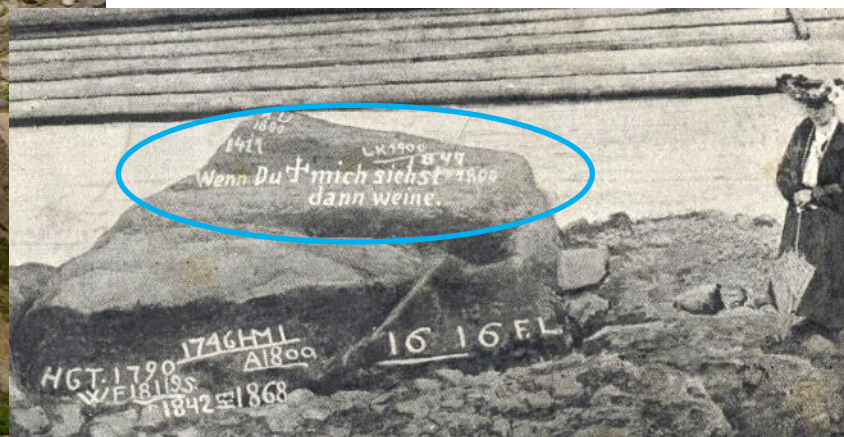 1800
1417
LK1900
1847
Wenn Du † mich siehst 1800
dann weine.
1746 HMI
A1800
16 16 F.L
HGT. 1790
1842 1868